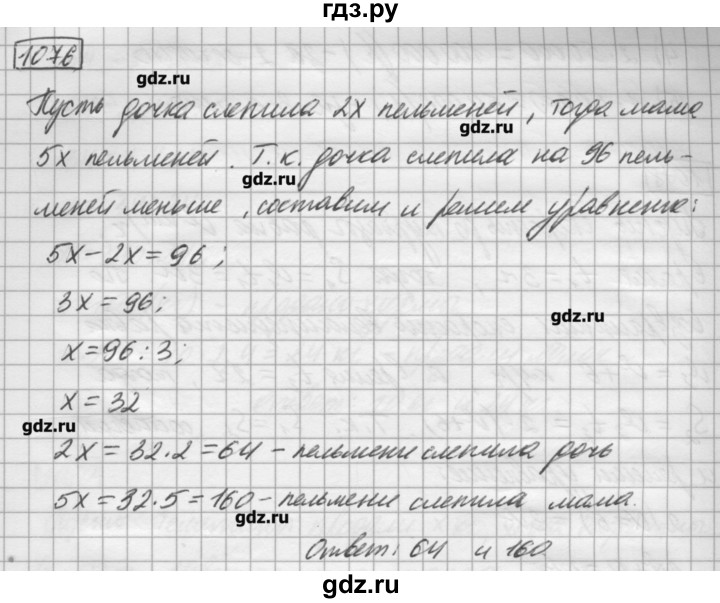 гдз.ру
1076
gdz.ru
Пусть дочка слепила 2х пельменей, тогда мама
gdz.ru
5х пельменей. Т.к. дочка слепила на 96 пель-
gdz.ru
меней меньше, составим и решем уравнение:
5х-2х=96;
3х=96;
gdz.ru
х=96:3;
х=32
gdz.ru
2х=32·2=64-пельмени слепила дочь
5х=32·5=160-пельмени слепила мама.
gdz.ru
Ответ: 64 и 160
gdz.ru